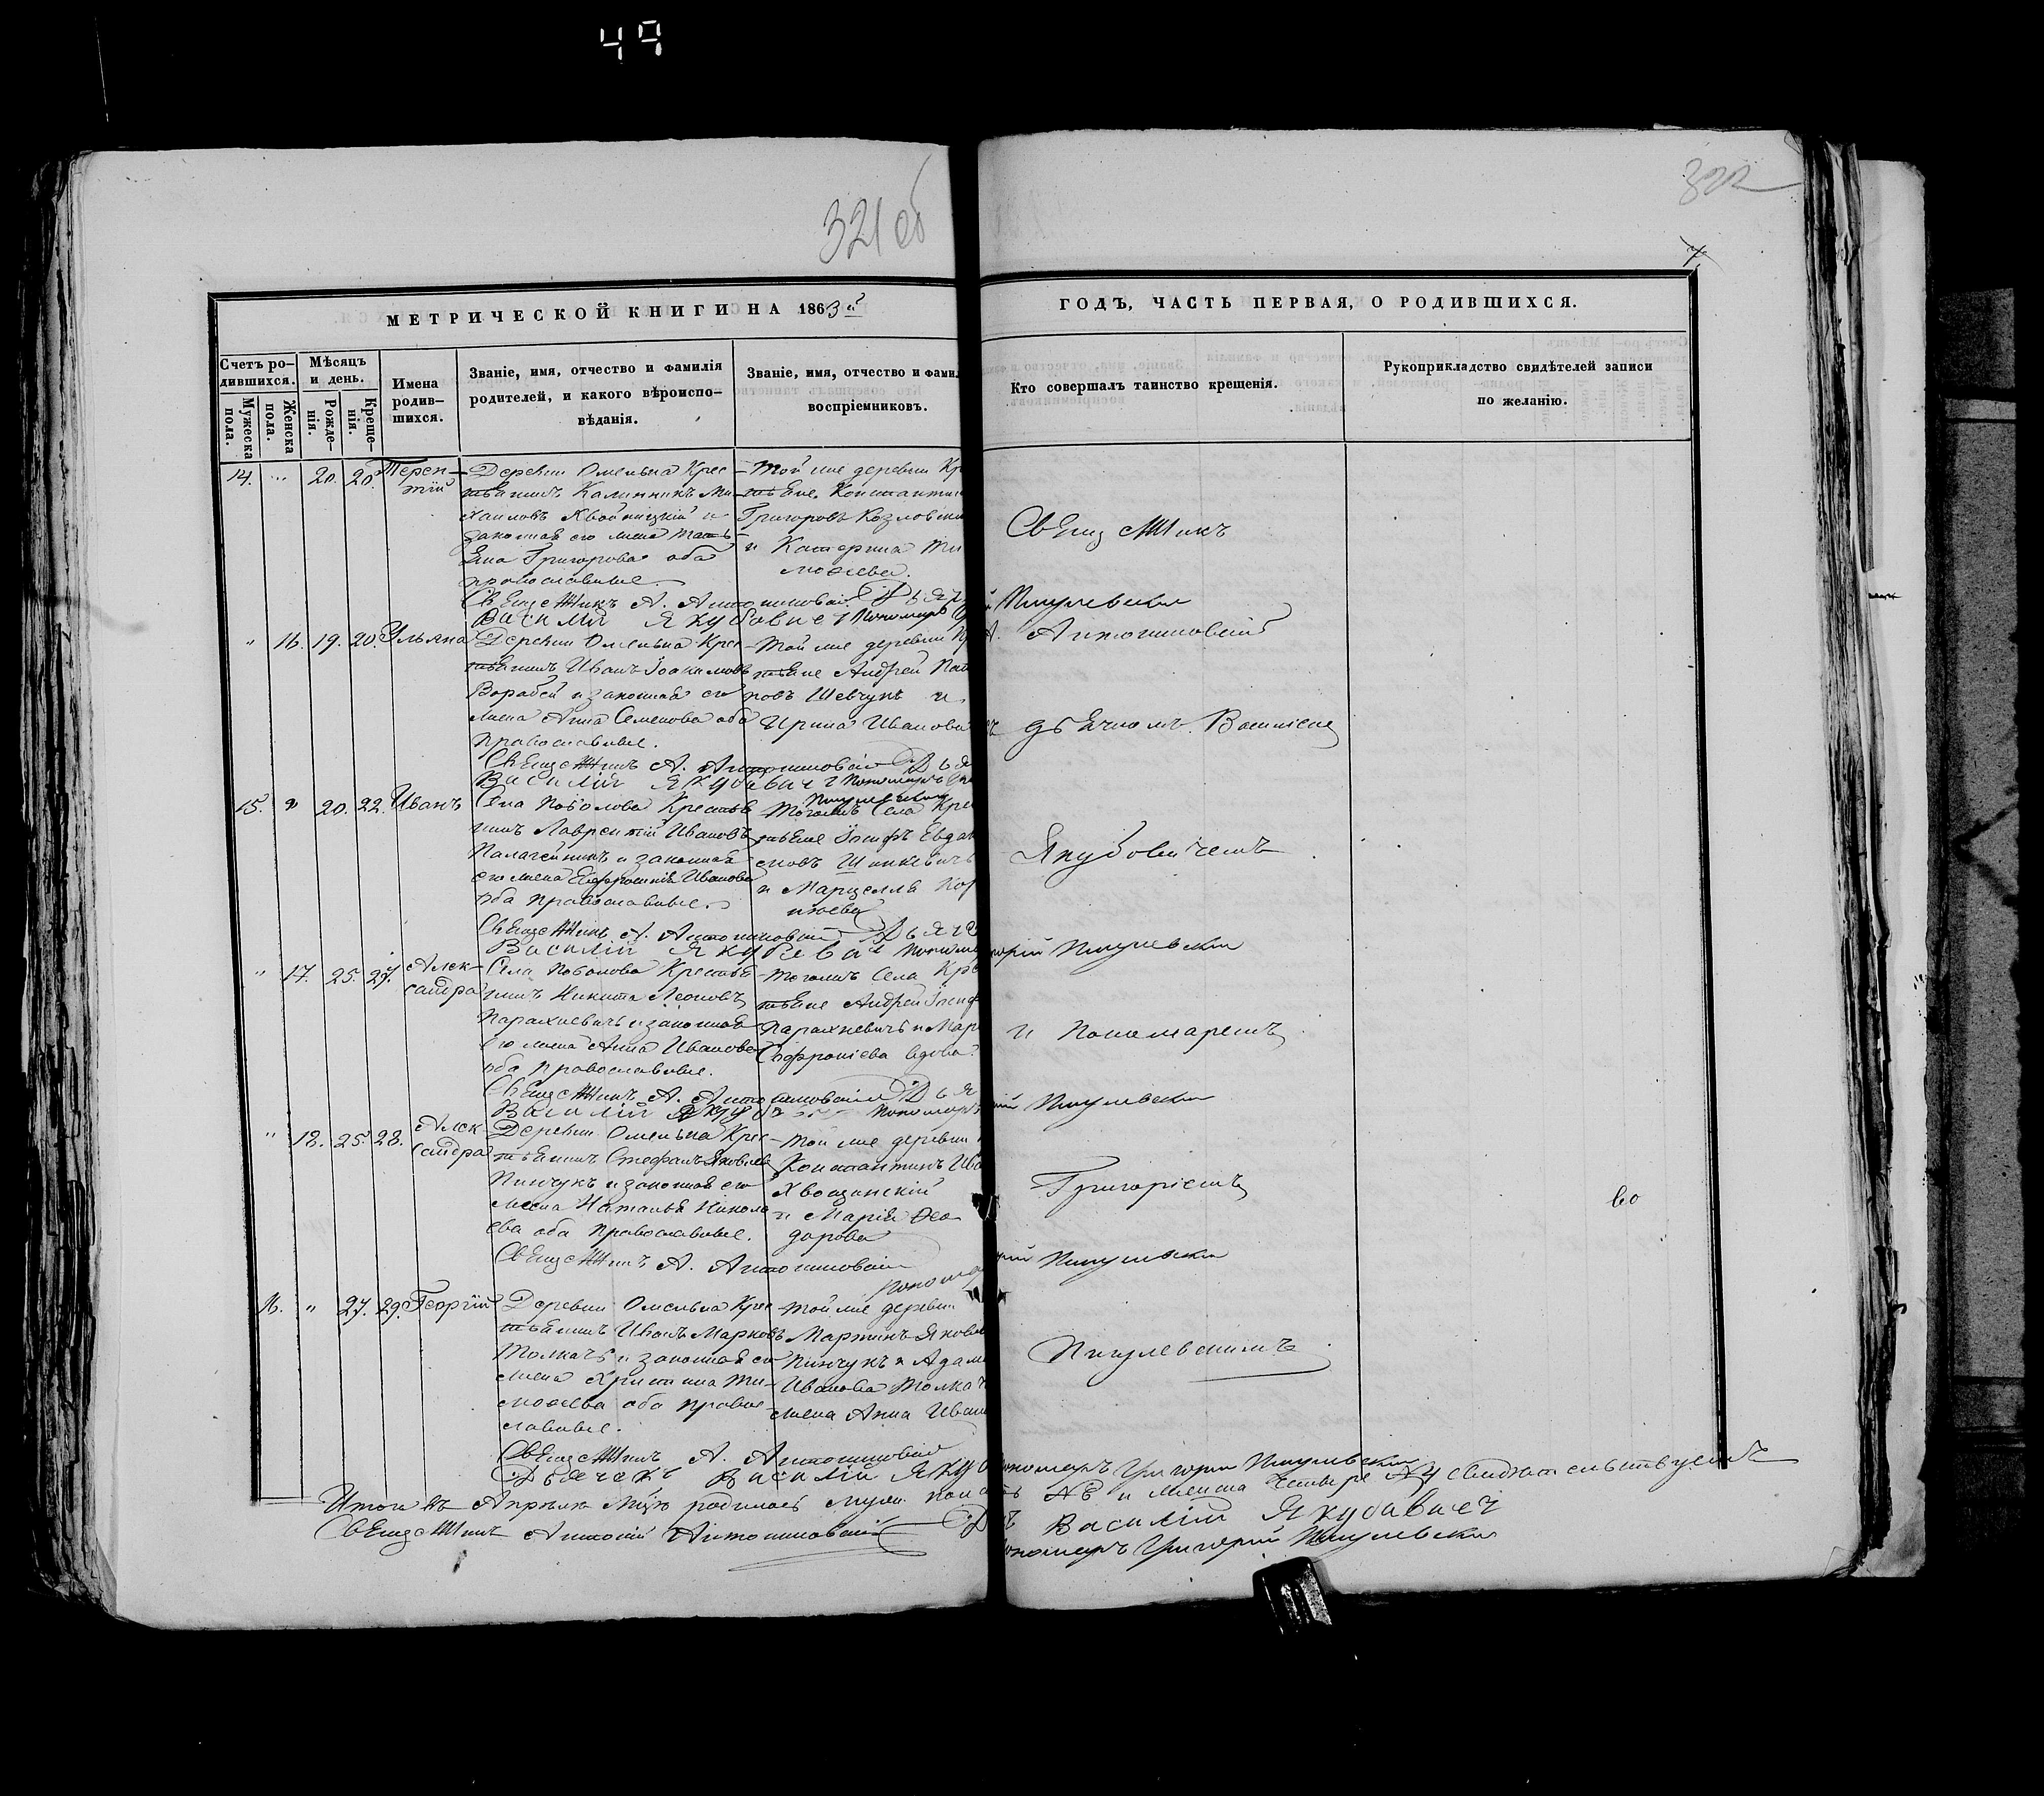 49
321 об
322
7
МЕТРИЧЕСКОЙ КНИГИ НА 1863й
ГОДЪ, ЧАСТЬ ПЕРВАЯ, О РОДИВШИХСЯ.
Счетъ ро-
дившихся.
Мужеска пола.
Женска пола.
Мѣсяцъ
и день.
Рожде-
нія.
Креще-
нія.
Имена
родив-
шихся.
Званіе, имя, отчество и фамилія
родителей, и какого вѣроиспо-
вѣданія.
Званіе, имя, отчество и фами
воспріемниковъ.
Кто совершалъ таинство крещенія.
Рукоприкладство свидѣтелей записи
по желанію.
14. " 20. 20. Терен-
тій
Деревни Омельна Крес
тьянинъ Калинникъ Ми
хаиловъ Хвойницкій и
законная его жена Тать
яна Григорова оба
православные.
Той же деревни Кр
тьяне Константи
Григоровъ Козловски
и Катерина Ти
мофеева.
Священникъ А. Антониновскій Дьяч
Василій Якубовичъ Пономарь
Пигулевскій
" 16. 19. 20. Ульяна
Деревни Омельна Крес
тьянинъ Иванъ Іоакимовъ
Воробей и законная его
жена Анна Семенова оба
православные.
Той же деревни Кр
тьяне Андрей Пав
ловъ Шевчукъ и
Ирина Иванова
Священникъ А. Антониновскій Дья
Василій Якубовичъ Пономарь
Пигулевскій
15. " 20. 22. Иванъ
Села Поболова Крестья
нинъ Лаврентій Ивановъ
и законная
его жена Евфросинія Иванова
оба православные.
Тогожъ Села Кре
тьяне Іосифъ Евдо
кимовъ Шинкевичъ
и Марцелла Кор
нѣева
Священникъ А. Антониновскій Дьяч
Василій Якубовичъ Пономарь
Пигулевскій
" 17. 25. 27. Алек-
сандра
Села Поболова Крестья
нинъ Никита Леоновъ
Парахневичъ и законная
его жена Анна Иванова
оба православные.
Тогожъ Села Кре
тьяне Андрей Іосиф
Парахневичъ и Мар
Софроніева вдова.
Священникъ А. Антониновскій Дья
Василій Пономарь
Пигулевскій
" 18. 25. 28. Алек
сандра
Деревни Омельна Крес
тьянинъ Стефанъ Яковлевъ
Пинчукъ и законная его
жена Наталья Никола
ева оба православные.
Той же деревни
Константинъ Ива
Хвощинскій
и Марія Ѳео
дорова
Священникъ А. Антониновскій
Пономарь
Пигулевскій
16. " 27. 29. Георгій
Деревни Омельна Крес
тьянинъ Иванъ Марковъ
Толкачъ и законная его
жена Христина Ти-
мофеева оба право
славные.
Той же деревни
Мартинъ Яковл
Пинчукъ и Адам
Иванова Толкач
жена Анна Иван
Священникъ А. Антониновскій
Дьячекъ Василій Яку
Пономарь Григорій Пигулевскій
Священникъ
А. Антониновскій
дьячкомъ Василіемъ
Якубовичемъ
и Пономаремъ
Григоріемъ
Пигулевскимъ
Итого въ Апрѣлѣ родилось муж. и женска четыре свидѣтельствуемъ
Священникъ Антоній Антониновскій
Василій Якубовичъ
Пономарь Григорій Пигулевскій